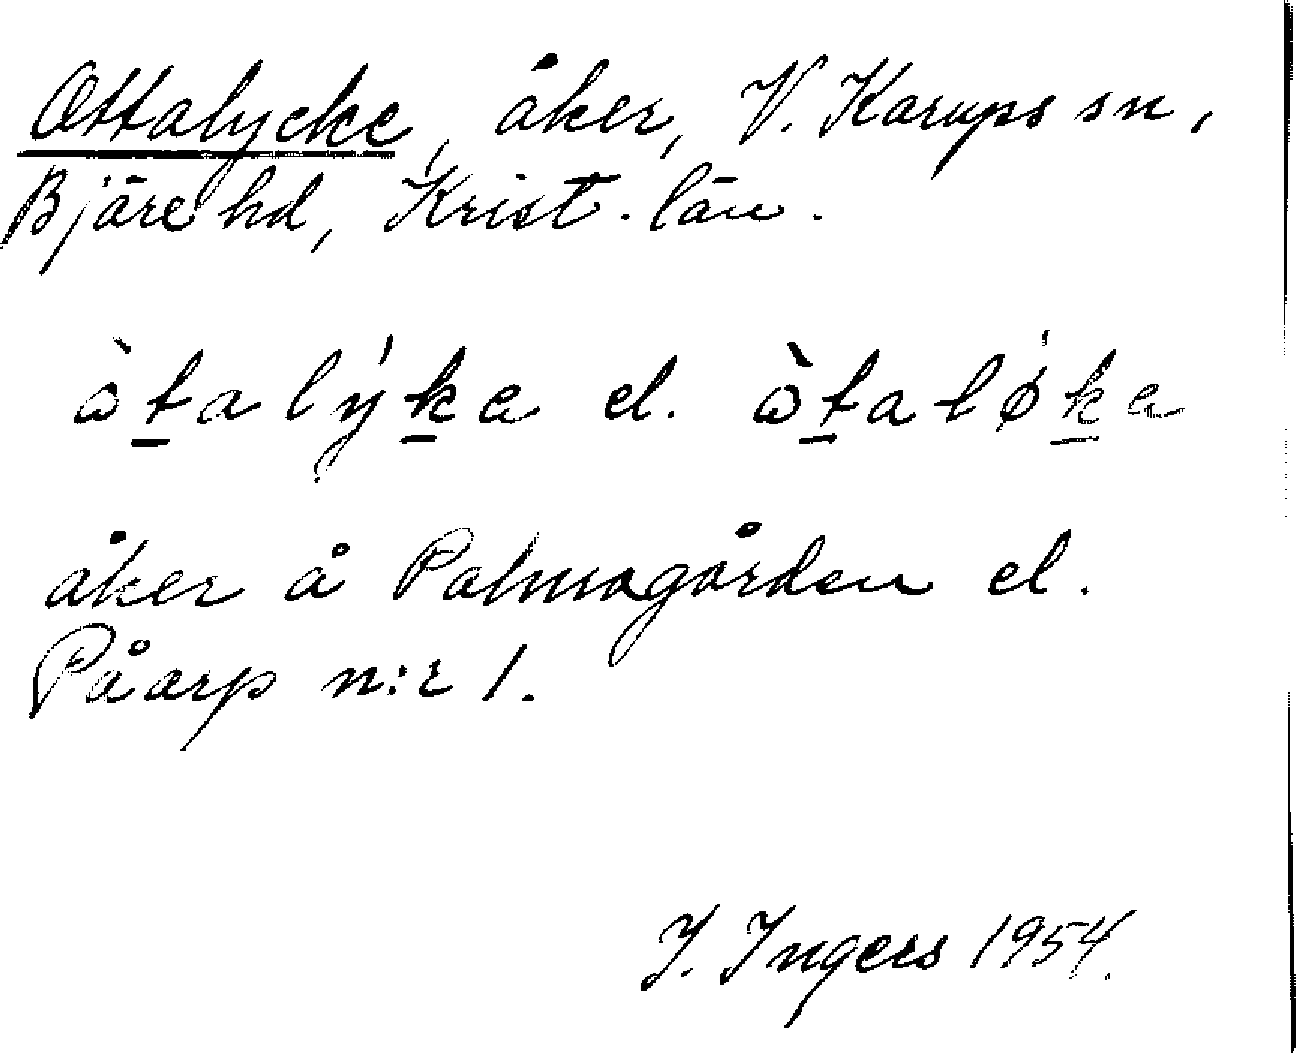 Ottalycke, åker, V. Karups sn,
Bjäre hd, Krist. län.
òtalýka el. òtalǿka
åker å Palmagården el.
Påarp n:r 1.
I. Ingers 1954.